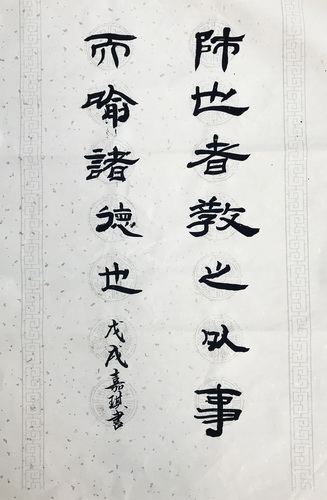 師也者教之以事
而喻諸德也
戊戌嘉琪書